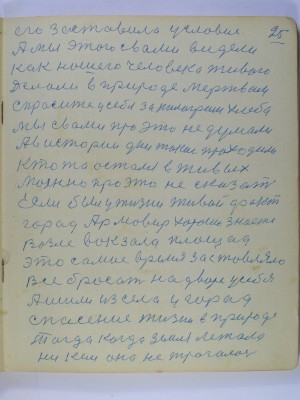 его заставила условие 25
А мы этого с вами видели
как нашего человека живого
Делали в природе мертвым
спросите у себя за килограмм хлеба
мы с вами про это не думали
А в истории дни такие проходили
кто то остался в живых
можно про это не сказать
Если бы и у жизни живой факт
город Армавир хорошо знаете
возле вокзала площад
это самое время заставляло
Все бросать на дворе у себя
А шли из села у город
спасение жизни в природе
Тогда когда земля лежала
ни кем она не трогалась